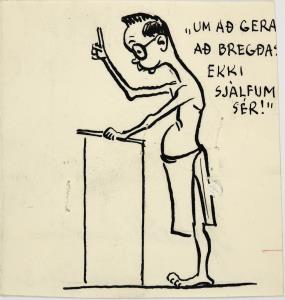 „UM AÐ GERA
AÐ BREGÐAS
EKKI
SJÁLFUM
SÉR!"